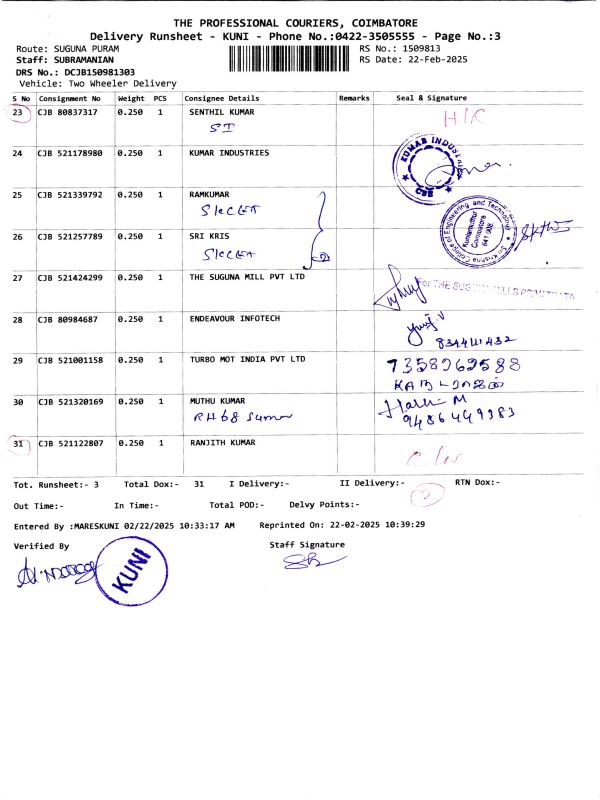 THE PROFESSIONAL COURIERS, COIMBATORE
Delivery Runsheet - KUNI - Phone No.:0422-3505555 - Page No.:3
Route: SUGUNA PURAM
RS No.: 1509813
Staff: SUBRAMANIAN
RS Date: 22-Feb-2025
DRS No.: DCJB150981303
Vehicle: Two Wheeler Delivery
S No Consignment No Weight PCS Consignee Details Remarks Seal & Signature
23 CJB 80837317 0.250 1 SENTHIL KUMAR
24 CJB 521178980 0.250 1 KUMAR INDUSTRIES
KUMAR INDUSTRIES CBE
25 CJB 521339792 0.250 1 RAMKUMAR
SKCET
Sri Krishna College of Engineering and Technology
Kuniamuthur
Coimbatore
641 008
26 CJB 521257789 0.250 1 SRI KRIS
SKCET
27 CJB 521424299 0.250 1 THE SUGUNA MILL PVT LTD
For THE SUGUNA MILLS PRIVATE LTD
28 CJB 80984687 0.250 1 ENDEAVOUR INFOTECH
29 CJB 521001158 0.250 1 TURBO MOT INDIA PVT LTD
7358962588
30 CJB 521320169 0.250 1 MUTHU KUMAR
9486449383
31 CJB 521122807 0.250 1 RANJITH KUMAR
Tot. Runsheet:- 3 Total Dox:- 31 I Delivery:- II Delivery:- RTN Dox:-
Out Time:- In Time:- Total POD:- Delvy Points:-
Entered By :MARESKUNI 02/22/2025 10:33:17 AM Reprinted On: 22-02-2025 10:39:29
Verified By Staff Signature
KUNI